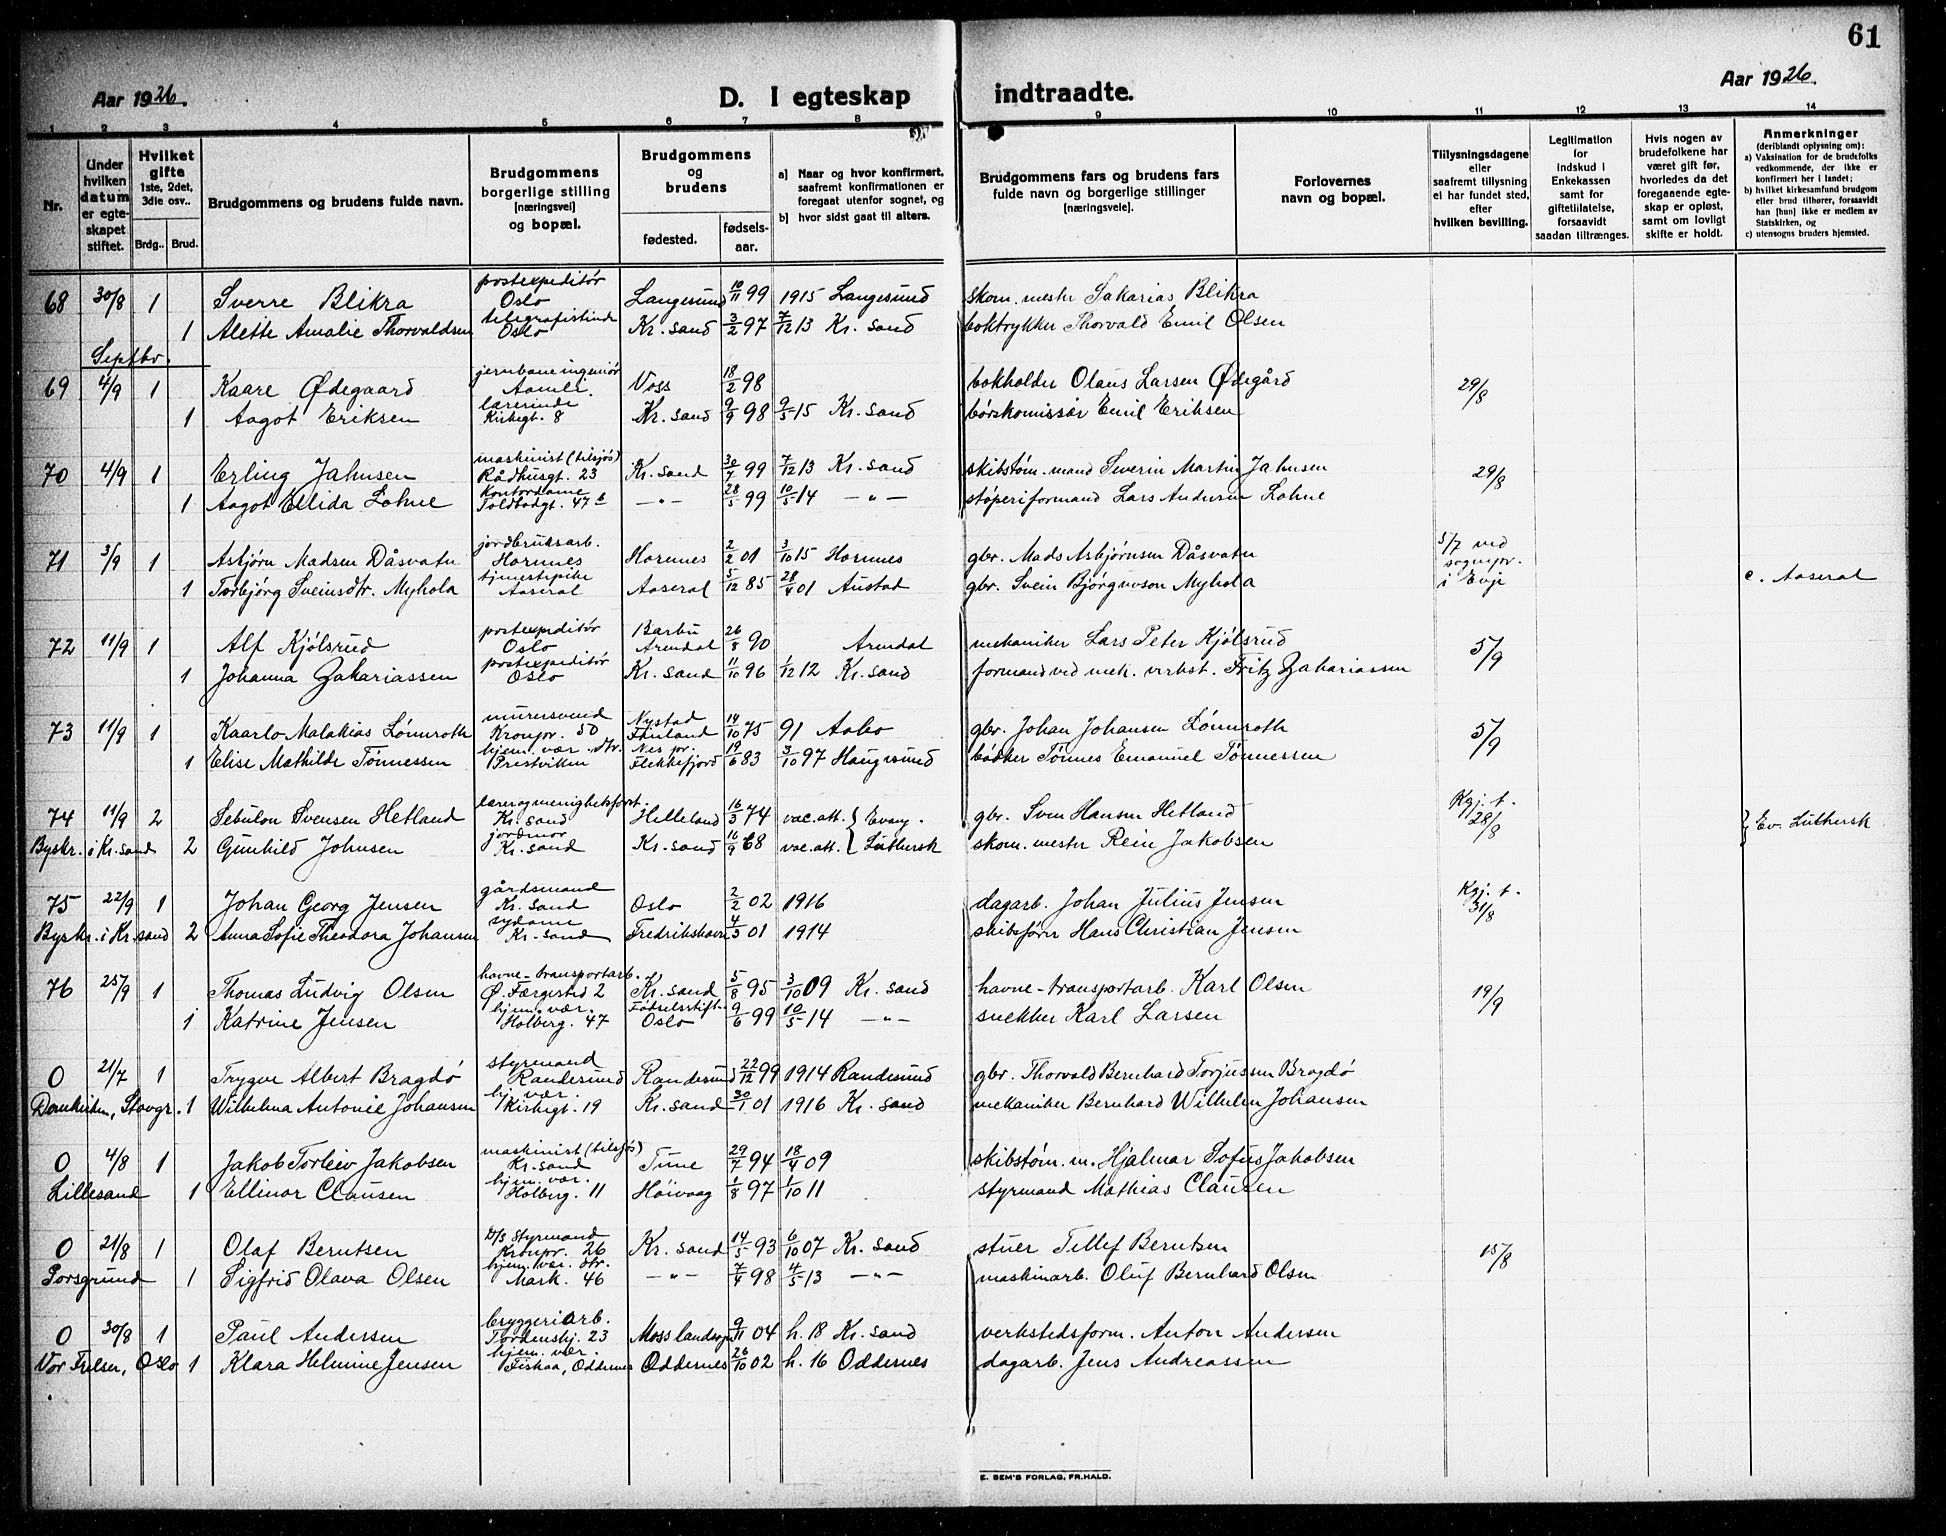 61
Aar 1926.
D. I egteskap indtraadte.
Aar 1926.
1 2 3 4 5 6 7 8 9 10 11 12 13 14
Nr.
Under hvilken datum er egteskapet stiftet.
Hvilket gifte 1ste, 2det, 3die osv..
Brdg.. Brud.
Brudgommens og brudens fulde navn.
Brudgommens borgerlige stilling [næringsvei] og bopæl.
Brudgommens og brudens
fødested. fødsels-aar.
a) Naar og hvor konfirmert, saafremt konfirmationen er foregaat utenfor sognet, og
b) hvor sidst gaat til alters.
Brudgommens fars og brudens fars fulde navn og borgerlige stillinger [næringsveie].
Forlovernes navn og bopæl.
Tillysningsdagene eller saafremt tillysning ei har fundet sted, efter hvilken bevilling.
Legitimation for indskud i Enkekassen samt for giftetillatelse, forsaavidt saadan tiltrænges.
Hvis nogen av brudefolkene har været gift før, hvorledes da det foregaaende egteskap er opløst, samt om lovligt skifte er holdt.
Anmerkninger (deriblandt oplysning om):
a) Vaksination for de brudefolks vedkommende, der ikke er konfirmert her i landet;
b) hvilket kirkesamfund brudgom eller brud tilhører, forsaavidt han [hun] ikke er medlem av Statskirken, og
c) utensogns bruders hjemsted.
68 30/8 1 Sverre Blikra postexpeditør Oslo Langesund 10/11 99 1915 Langesund skom.mester Sakarias Blikra
1 Alette Amalie Thorvaldsen telegrafistinde Oslo Kr.sand 3/2 97 7/12 13 Kr. sand boktrykker Thorvald Emil Olsen
Septbr.
69 4/9 1 Kaare Ødegaard jernbaneingeniør Aamli. Voss 18/2 98 bokholder Olaus Larsen Ødegård 29/8
1 Aagot Eriksen lærerinde Kirkegt. 8 Kr. sand 9/9 98 9/5 15 Kr. sand børskomissær Emil Eriksen
70 4/9 1 Erling Jahnsen maskinist (tilsjøs) Rådhusgt. 23 Kr. sand 30/7 99 7/12 13 Kr. sand skibstøm.mand Severin Martin Jahnsen 29/8
1 Aagot Ellida Lohne Kontordame Toldbodgt. 47 b —"— 28/5 99 10/5 14 —"— støperiformand Lars Andersen Lohne
71 3/9 1 Asbjørn Madsen Dåsvatn jordbruksarb. Hornnes Hornnes 2/2 01 3/10 15 Hornnes gbr. Mads Asbjørnsen Dåsvatn 5/7 ved sognepr. i Evje
1 Torbjørg Sveinsdtr. Myhola tjenestepike Aaseral Aaseral 5/12 85 28/4 01 Austad gbr. Svein Bjørguvson Myhola c. Aaseral
72 11/9 1 Alf Kjølsrud postexpeditør Oslo Barbu Arendal 26/8 90 Arendal mekaniker Lars Peter Kjølsrud 5/9
1 Johanna Zakariassen postexpeditør Oslo Kr. sand 11/10 96 1/12 12 Kr. sand formand ved mek. verkst. Fritz Zakariassen
73 11/9 1 Kaarlo Malakias Lönnroth murersvend Kronpr. 50 Nystad Finland 14/10 75 91 Aabo gbr. Johan Johansen Lönnroth 5/9
1 Elise Mathilde Tönnessen hjem. vær. dtr. Prestviken Nes pr. Flekkefjord 19/6 83 3/10 97 Haugesund bødker Tønnes Emanuel Tønnessen
74 11/9 2 Sebulon Svensen Hetland lærer og menighetsforst. Kr. sand Helleland 16/3 74 vac. att. } Evang. gbr. Sven Hansen Hetland Kgj. t. 28/8 } Ev. Luthersk
Byskr. i Kr. sand 2 Gunhild Johnsen jordmor Kr. sand Kr. sand 16/9 68 vac. att. } Luthersk skom. mester Rein Jakobsen
75 22/9 1 Johan Georg Jensen gårdsmand Kr. sand Oslo 2/2 02 1916 dagarb. Johan Julius Jensen Kgj. t. 31/8
Byskr. i Kr. sand 2 Anna Sofie Theodora Johansen sydame Kr. sand Fredrikshavn 4/3 01 1914 skibsfører Hans Christian Jensen
76 25/9 1 Thomas Ludvig Olsen havne-transportarb. Ø. Færgested 2 Kr. sand 5/8 95 3/10 09 Kr. sand havne-transportarb. Karl Olsen 19/9
1 Katrine Jensen hjem. vær. Holberg. 47 Fødselsstift. Oslo 9/6 99 10/5 14 —"— snekker Karl Larsen
0 21/7 1 Trygve Albert Bragdö styrmand Randesund Randesund 22/12 99 1914 Randesund gbr. Thorvald Bernhard Torjussen Bragdö
Domkirken, Stavgr. 1 Wilhelma Antonie Johansen hjem. vær. Kirkegt. 19 Kr. sand 30/1 01 1916 Kr. sand mekaniker Bernhard Wilhelm Johansen
0 4/8 1 Jakob Torleiv Jakobsen maskinist (tilsjøs) Kr. sand Tune 29/7 94 18/4 09 skibstøm. m. Hjalmar Sofus Jakobsen
Lillesand 1 Ellinor Clausen hjem. vær. Holberg. 11 Höivaag 1/8 97 1/10 11 styrmand Mathias Clausen
0 21/8 1 Olaf Berntsen D/S Styrmand Kronpr. 26 Kr. sand 14/5 93 6/10 07 Kr. sand stuer Tellef Berntsen 15/8
Porsgrund 1 Sigfrid Olava Olsen hjem. vær. dtr. Mark. 46 —"— 7/4 98 4/5 13 —"— maskinarb. Oluf Bernhard Olsen
0 30/8 1 Paul Andersen bryggeriarb. Tordenskj. 23 Moss landsogn 9/11 04 h. 18 Kr. sand verkstedsform. Anton Andersen
Vor Frelser, Oslo 1 Klara Helmine Jensen hjem. vær. Fiskaa, Oddernes Oddernes 26/10 02 h. 16 Oddernes dagarb. Jens Andreassen
E. SEM'S FORLAG, FR.HALD.